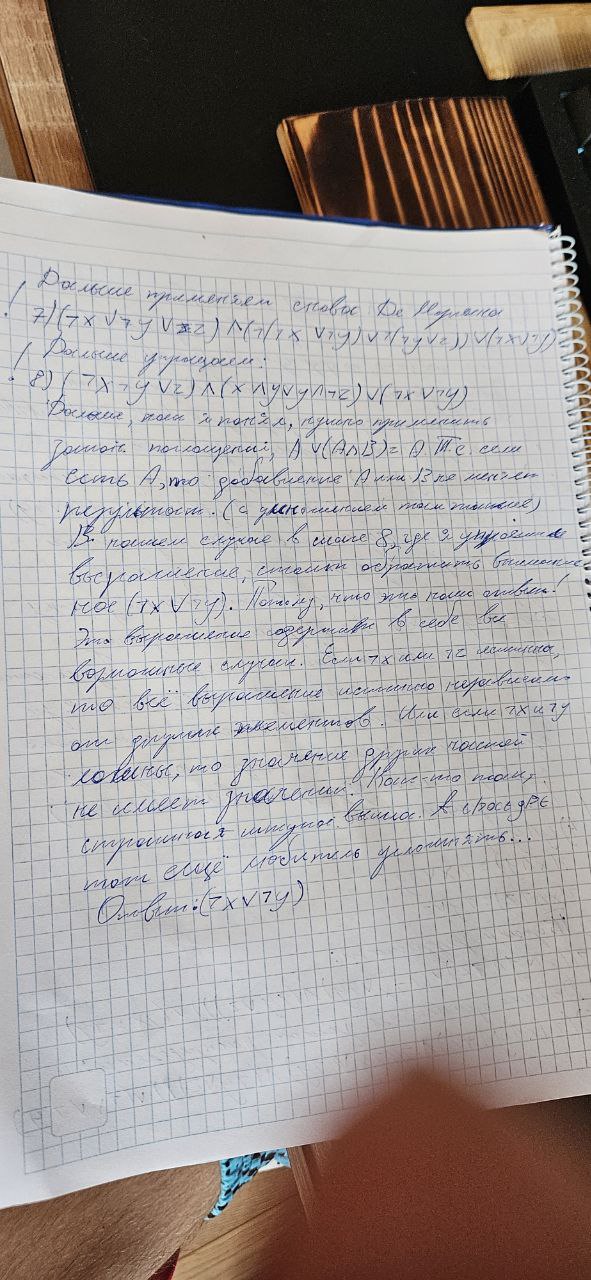 ! Дальше применяем снова Де Моргана
7) (¬x ∨ ¬y ∨ z) ∧ (¬(¬x ∨ ¬y) ∨ ¬(¬y ∨ z)) ∨ (¬x ∨ ¬y)
! Дальше упрощаем:
8) (¬x ¬y ∨ z) ∧ (x ∧ y ∨ y ∧ ¬z) ∨ (¬x ∨ ¬y)
Дальше, как я понял, нужно применить
закон поглощения, A ∨ (A ∧ B) = A Т.е. если
есть A, то добавление A или B не меняет
результат. (с умножением так же)
В нашем случае в шаге 8, где я
выражение, стоит обратить
ное (¬x ∨ ¬y). Потому, что это наш ответ!
Это выражение содержит в себе все
возможные случаи. Если ¬x или ¬z истинна,
то всё выражение истинно независимо
от других элементов. Или если ¬x и ¬y
ложны, то значение других частей
не имеет значения. Как-то так,
странная штука вышла. А
тот ещё любитель усложнять...
Ответ: (¬x ∨ ¬y)